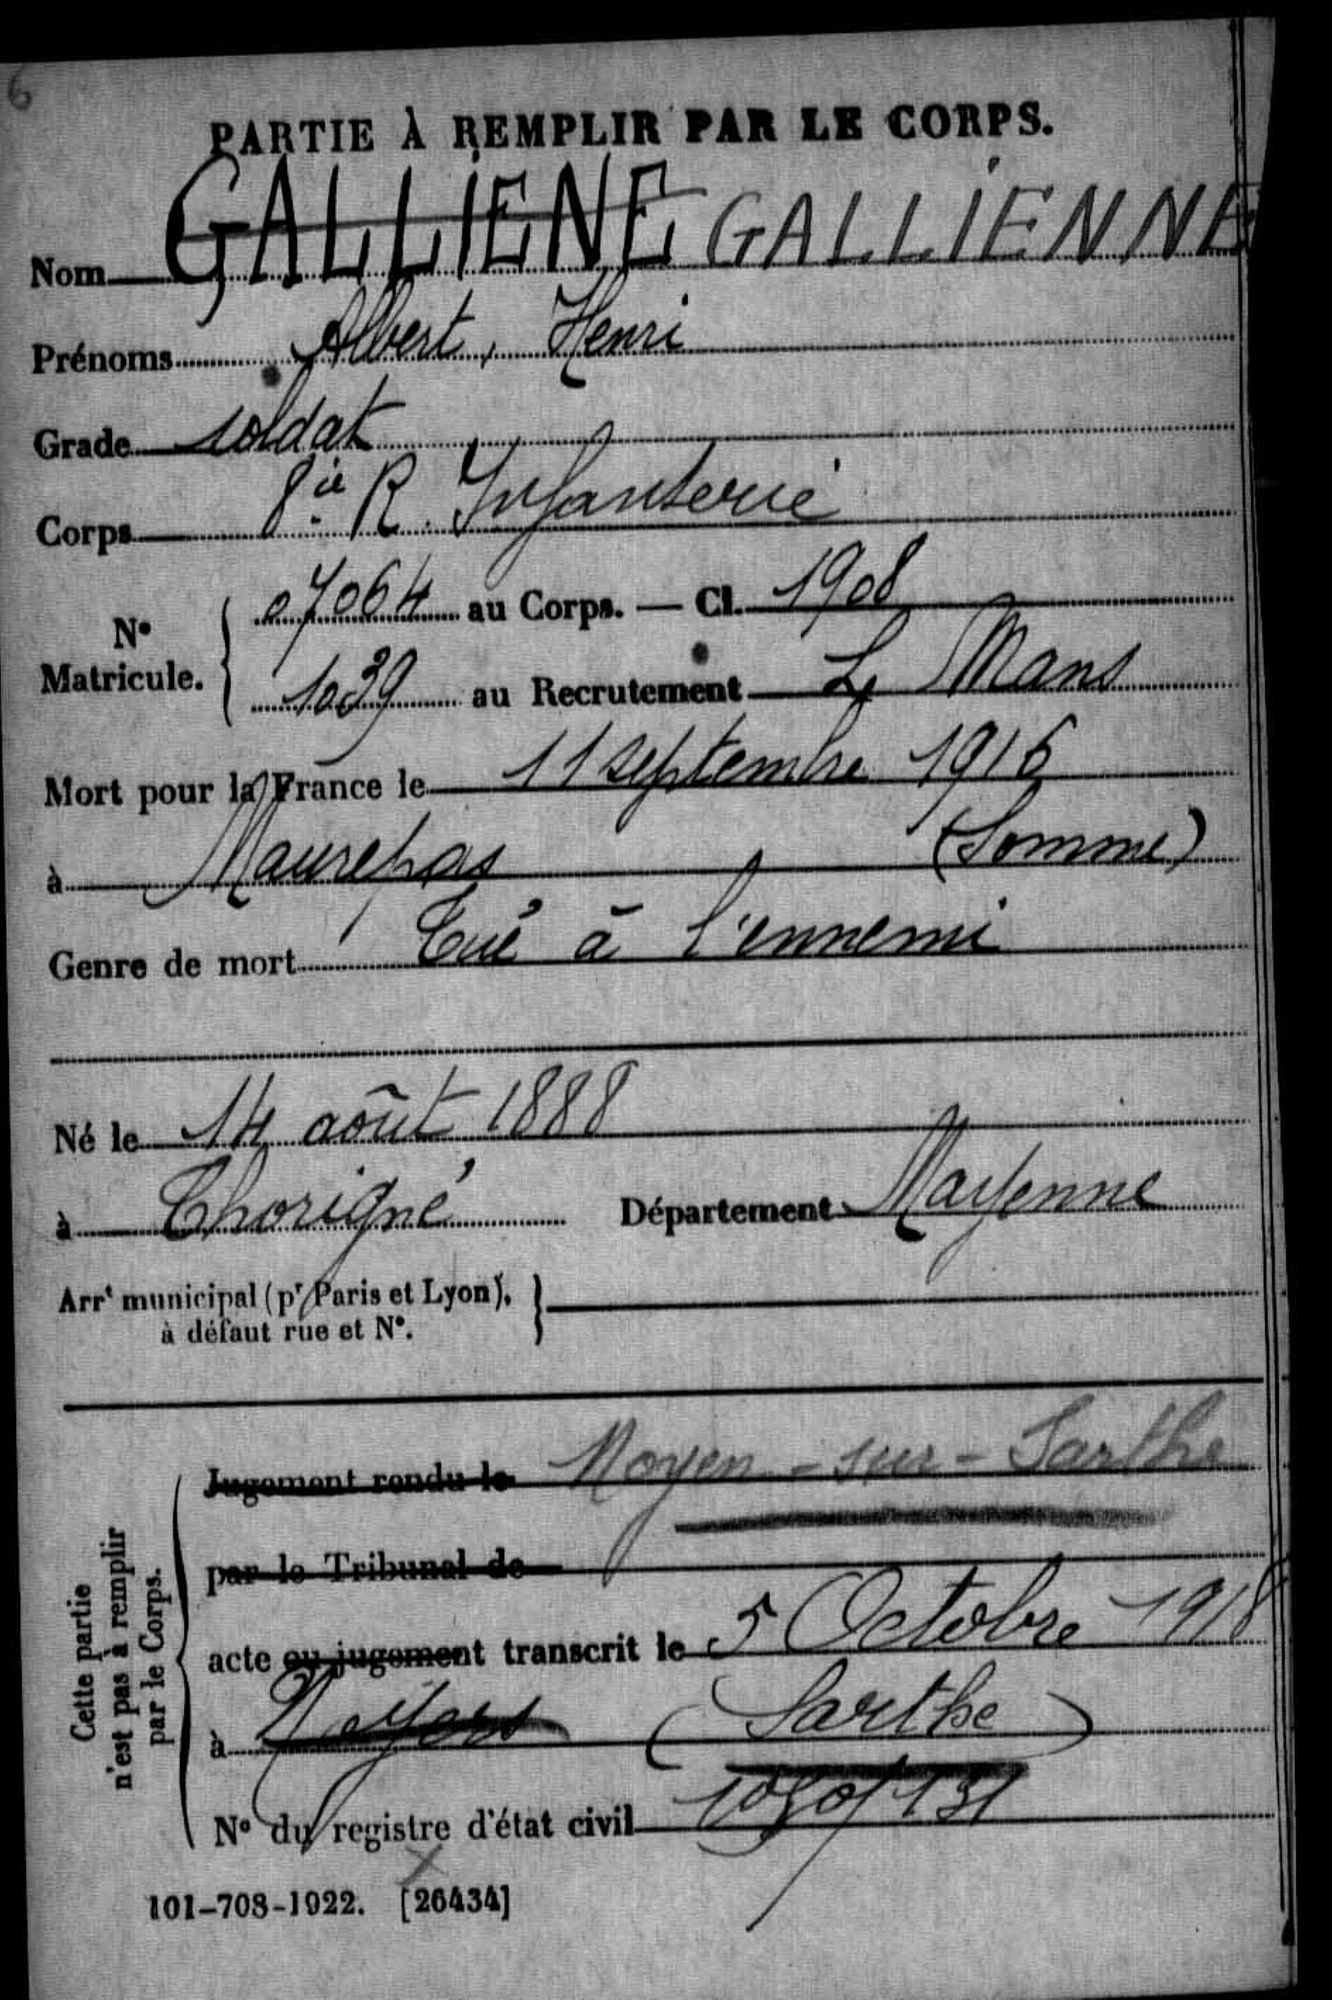 6
PARTIE À REMPLIR PAR LE CORPS.
Nom GALLIENE GALLIENNE
Prénoms Albert, Henri
Grade soldat
Corps 8ie R. Infanterie
N° Matricule. { 07064 au Corps. — Cl. 1908
1039 au Recrutement Le Mans
Mort pour la France le 11 septembre 1916
à Maurepas (Somme)
Genre de mort Tué à l'ennemi
Né le 14 août 1888
à Thorigné Département Mayenne
Arrt municipal (pr Paris et Lyon), }
à défaut rue et N°.
Cette partie n'est pas à remplir par le Corps.
Jugement rendu le Noyen-sur-Sarthe
par le Tribunal de
acte ou jugement transcrit le 5 Octobre 1918
à (Sarthe)
N° du registre d'état civil
101-708-1922. [26434]